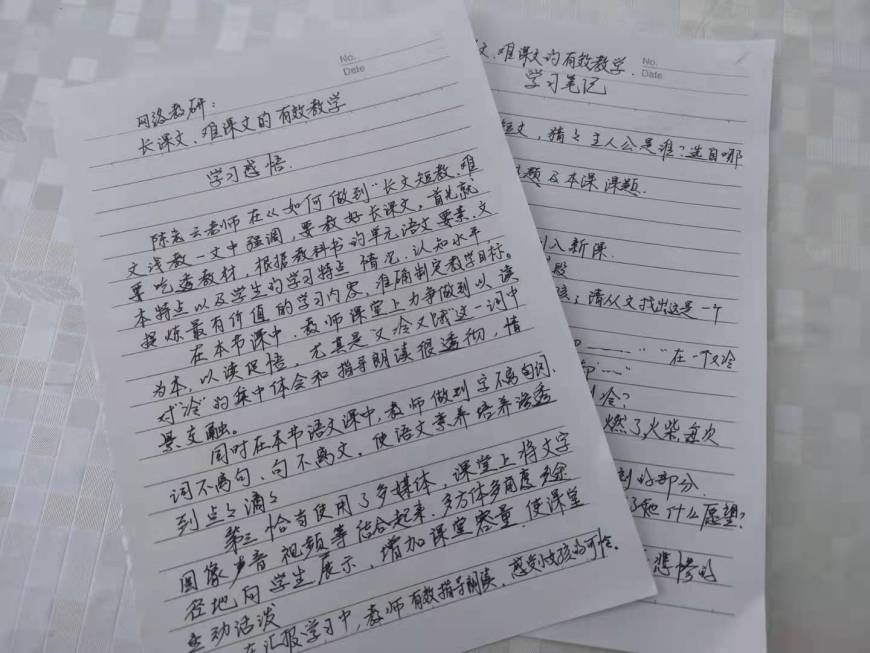 No.
Date
网络教研：
长课文、难课文的有效教学
学习感悟.
陈宏云老师在《如何做到“长文短教、难
文浅教一文中强调，要教好长课文，首先就
要吃透教材，根据教科书的单元语文要素、文
本特点以及学生的学习特点 情况、认知水平
提炼最有价值的学习内容，准确制定教学目标。
在本节课中，教师课堂上力争做到以读
为本，以读促悟，尤其是又冷又饿这一词中
对“冷”的集中体会和指导朗读很透彻，情
景交融。
同时在本节语文课中，教师做到字不离词、
词不离句、句不离文，使语文素养培养渗透
到点点滴滴
第三 恰当使用了多媒体，课堂上将文字
图像 声音 视频等结合起来，多方体多角度多途
径地向学生展示，增加课堂容量，使课堂
生动活泼
在汇报学习中，教师有效指导朗读，感受小女孩的可怜。
No.
Date
文、难课文的有效教学.
学习笔记
短文，猜猜主人公是谁？选自哪
题及本课课题.
入新课.
；请从文找出这是一个
“在一个又冷
冷？
燃了火柴，每次
的部分.
了她什么愿望？
悲惨的